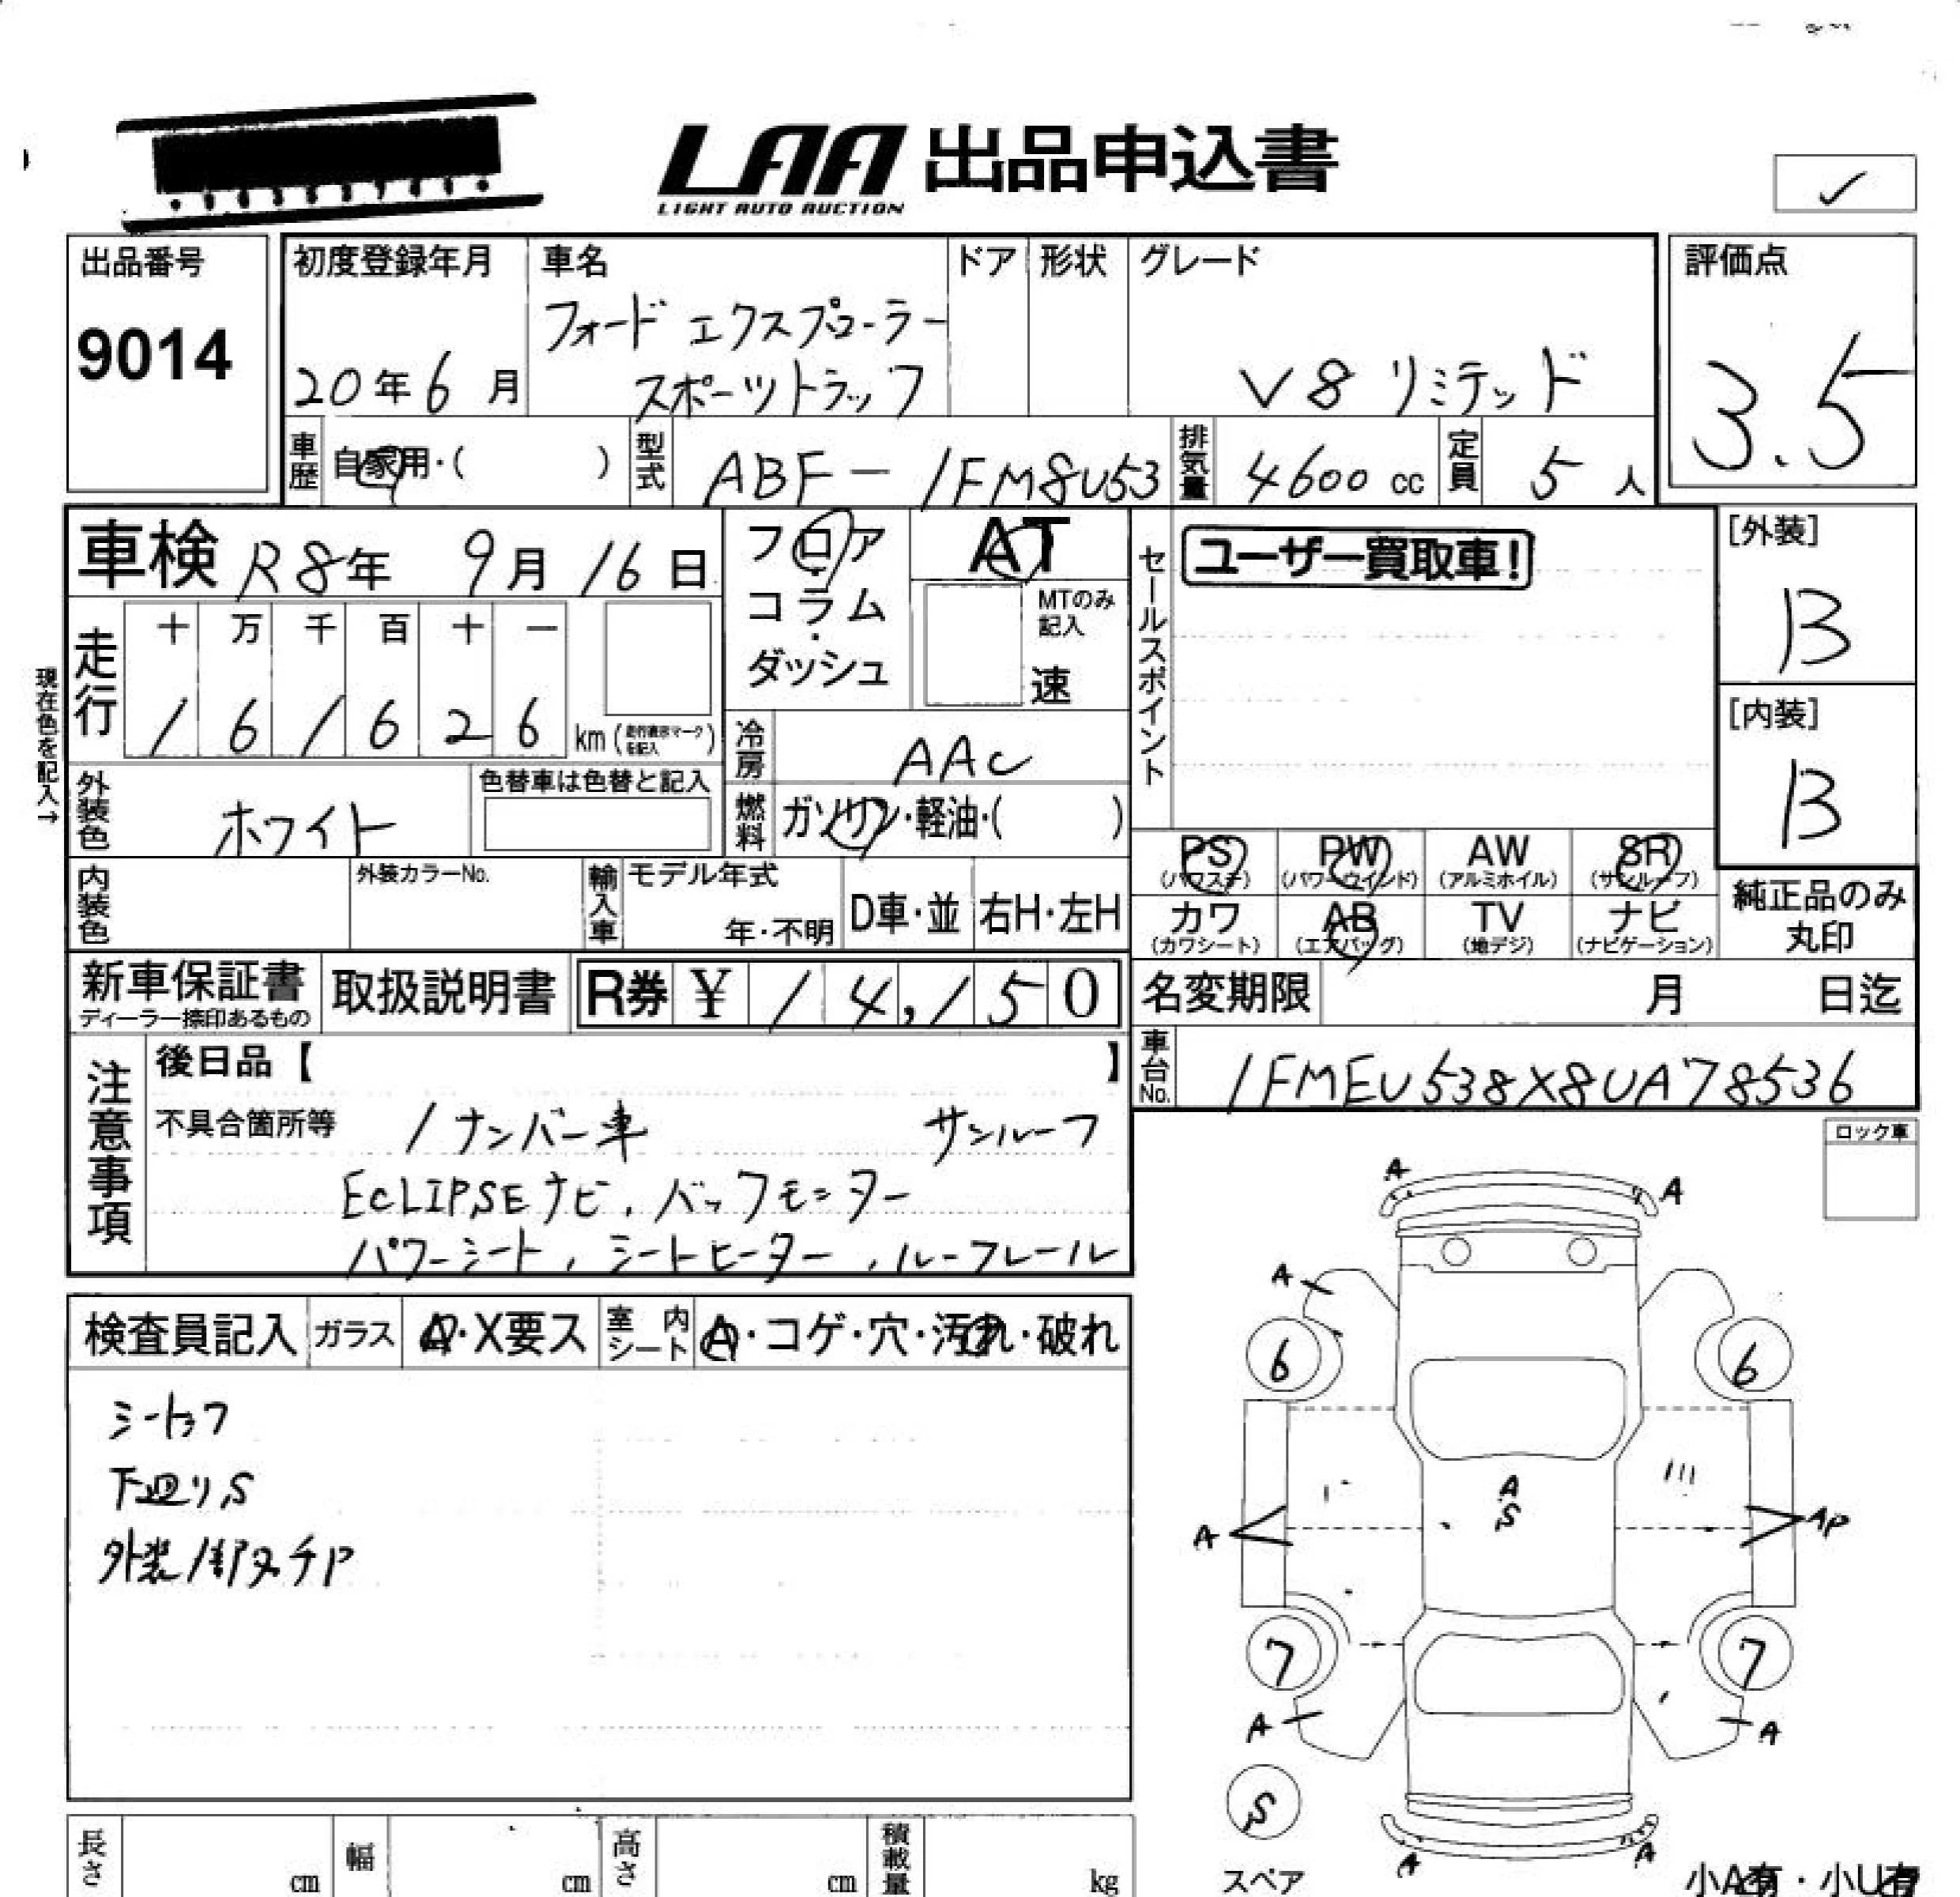 LAA 出品申込書
LIGHT AUTO AUCTION
✓
出品番号
9014
初度登録年月
20年6月
車名
フォード エクスプローラー
スポーツトラック
ドア
形状
グレード
V8 リミテッド
評価点
3.5
車歴
自家用・( )
型式
ABF-1FM8U53
排気量
4600 cc
定員
5人
車検 R8年 9月16日
フロア・コラム・ダッシュ
AT
MTのみ記入
速
セールスポイント
ユーザー買取車!
[外装]
B
[内装]
B
現在色を記入→
走行
十 万 千 百 十 一
1 6 1 6 2 6 km (走行表示マークを記入)
冷房
AAC
外装色
ホワイト
色替車は色替と記入
燃料
ガソリン・軽油・( )
PS (パワステ)
PW (パワーウインド)
AW (アルミホイル)
SR (サンルーフ)
カワ (カワシート)
AB (エアバッグ)
TV (地デジ)
ナビ (ナビゲーション)
純正品のみ
丸印
内装色
外装カラーNo.
輸入車
モデル年式
年・不明
D車・並
右H・左H
新車保証書
ディーラー捺印あるもの
取扱説明書
R券 ¥ 14,150
名変期限 月 日迄
車台No.
1FMEU538X8UA78536
注意事項
後日品【 】
不具合箇所等 1ナンバー車 サンルーフ
ECLIPSEナビ、バックモニター
パワーシート、シートヒーター、ルーフレール
ロック車
検査員記入
ガラス
A・X要ス
室内シート
A・コゲ・穴・汚れ・破れ
下廻りS
A
A
A
6
6
A
S
A
AP
7
7
A
A
S
スペア
A
A
小A有・小U有
長さ cm
幅 cm
高さ cm
積載量 kg